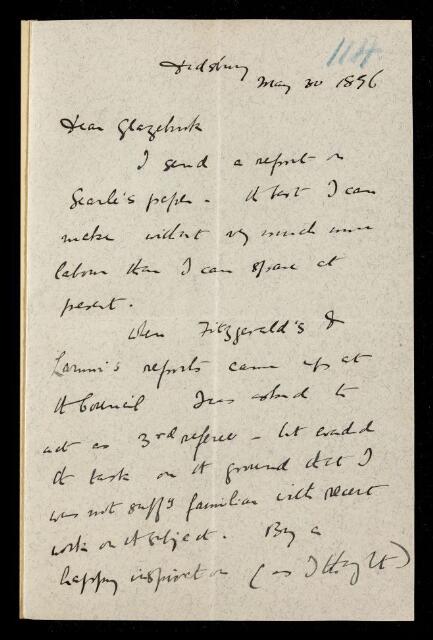 114
Didsbury
May 30 1896
Dear Glazebrook
I send a report on
Searle's paper - th best I can
make without vy much more
labour than I can spare at
present.
When Fitzgerald's &
Larmor's reports came up at
th Council I was asked to
act as 3rd referee - but evaded
th task on th ground that I
was not suffy familiar with recent
work on th subject. By a
happy inspiration (as I thought)